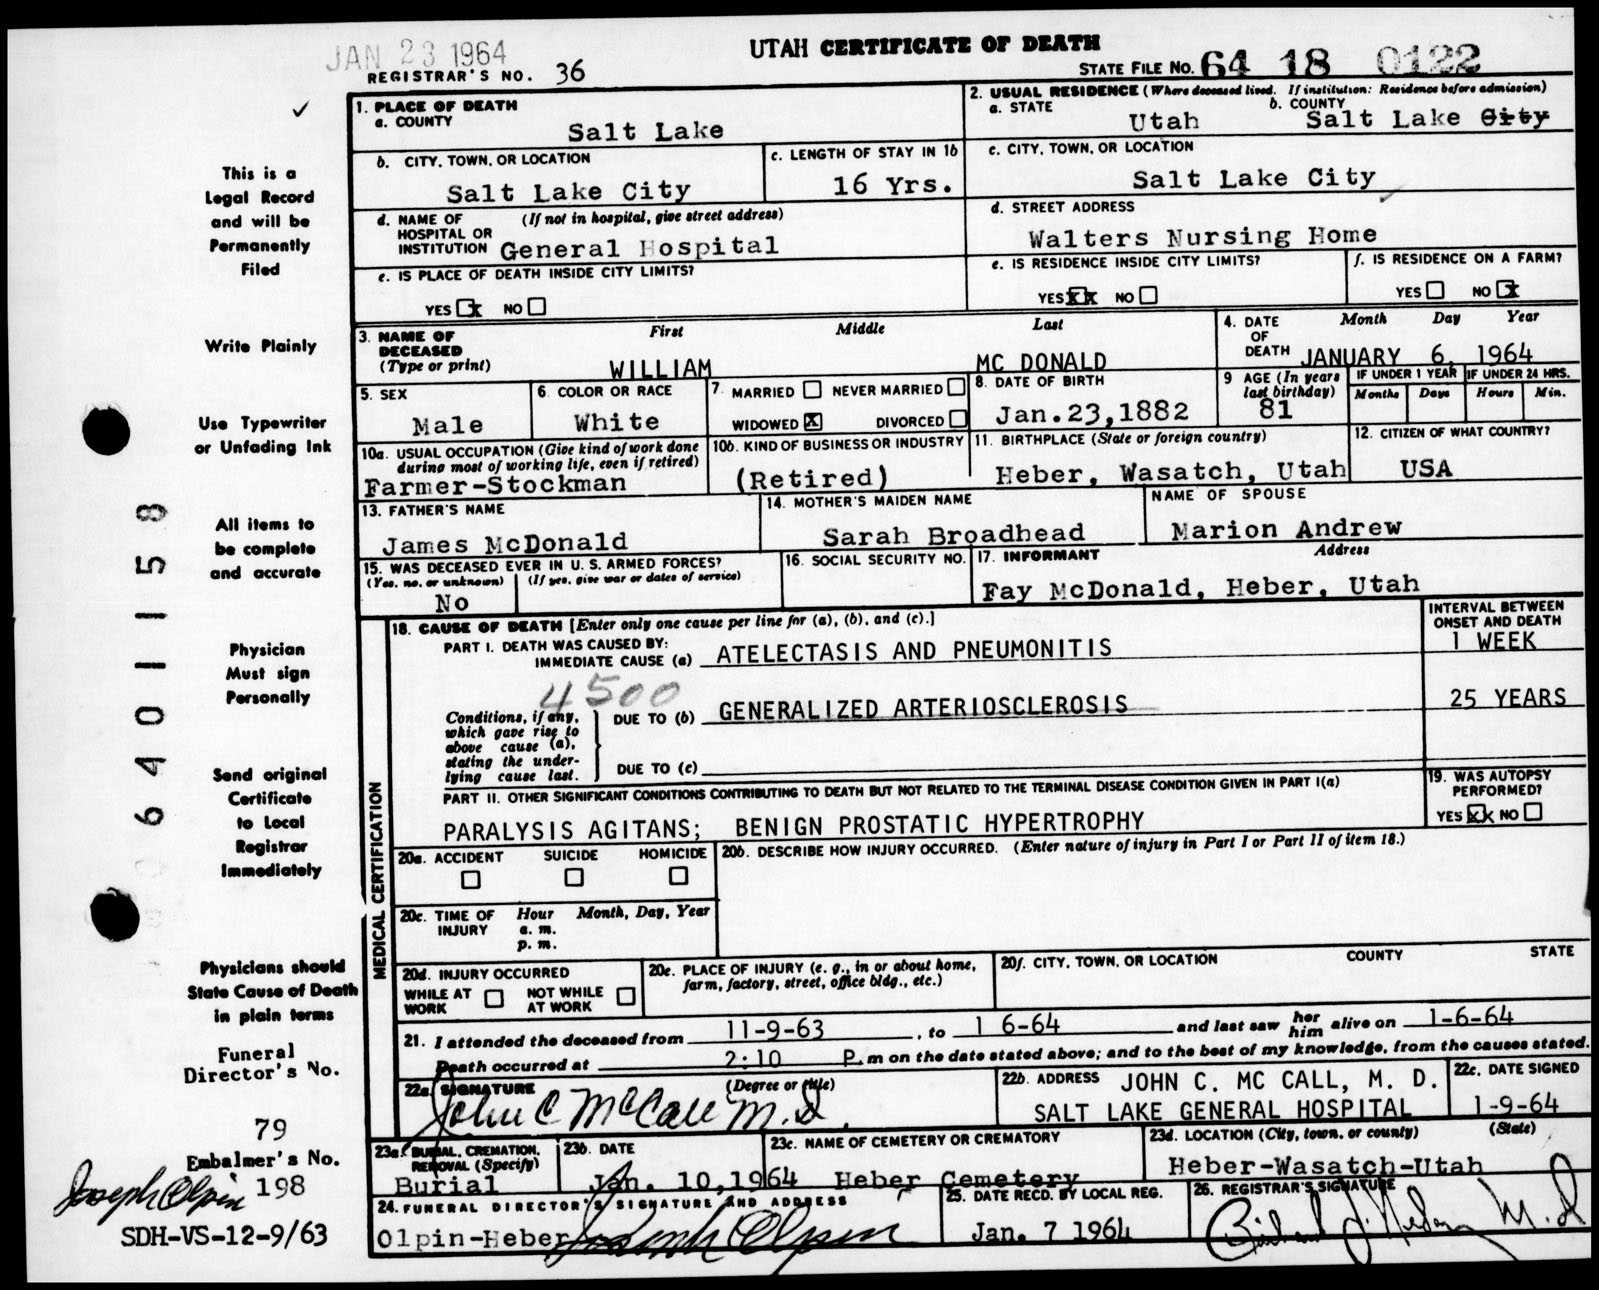 JAN 23 1964
UTAH CERTIFICATE OF DEATH
REGISTRAR'S NO. 36
STATE FILE NO. 64 18 0122
This is a
Legal Record
and will be
Permanently
Filed
Write Plainly
Use Typewriter
or Unfading Ink
All items to
be complete
and accurate
Physician
Must sign
Personally
Send original
Certificate
to Local
Registrar
Immediately
Physicians should
State Cause of Death
in plain terms
Funeral
Director's No.
79
Embalmer's No.
Joseph Olpin 198
SDH-VS-12-9/63
6401158
1. PLACE OF DEATH
a. COUNTY
Salt Lake
2. USUAL RESIDENCE (Where deceased lived. If institution: Residence before admission)
a. STATE b. COUNTY
Utah Salt Lake City
b. CITY, TOWN, OR LOCATION
Salt Lake City
c. LENGTH OF STAY IN 1b
16 Yrs.
c. CITY, TOWN, OR LOCATION
Salt Lake City
d. NAME OF (If not in hospital, give street address)
HOSPITAL OR
INSTITUTION General Hospital
d. STREET ADDRESS
Walters Nursing Home
e. IS PLACE OF DEATH INSIDE CITY LIMITS?
YES x NO
e. IS RESIDENCE INSIDE CITY LIMITS?
YES XX NO
f. IS RESIDENCE ON A FARM?
YES NO X
3. NAME OF First Middle Last
DECEASED
(Type or print) WILLIAM MC DONALD
4. DATE Month Day Year
OF
DEATH JANUARY 6, 1964
5. SEX
Male
6. COLOR OR RACE
White
7. MARRIED NEVER MARRIED
WIDOWED X DIVORCED
8. DATE OF BIRTH
Jan.23,1882
9 AGE (In years
last birthday)
81
IF UNDER 1 YEAR IF UNDER 24 HRS.
Months Days Hours Min.
10a. USUAL OCCUPATION (Give kind of work done
during most of working life, even if retired)
Farmer-Stockman
10b. KIND OF BUSINESS OR INDUSTRY
(Retired)
11. BIRTHPLACE (State or foreign country)
Heber, Wasatch, Utah
12. CITIZEN OF WHAT COUNTRY?
USA
13. FATHER'S NAME
James McDonald
14. MOTHER'S MAIDEN NAME
Sarah Broadhead
NAME OF SPOUSE
Marion Andrew
15. WAS DECEASED EVER IN U. S. ARMED FORCES?
(Yes, no, or unknown) (If yes, give war or dates of service)
No
16. SOCIAL SECURITY NO.
17. INFORMANT Address
Fay McDonald, Heber, Utah
MEDICAL CERTIFICATION
18. CAUSE OF DEATH [Enter only one cause per line for (a), (b), and (c).]
INTERVAL BETWEEN
ONSET AND DEATH
PART I. DEATH WAS CAUSED BY:
IMMEDIATE CAUSE (a) ATELECTASIS AND PNEUMONITIS 1 WEEK
4500
Conditions, if any,
which gave rise to
above cause (a),
stating the under-
lying cause last.
DUE TO (b) GENERALIZED ARTERIOSCLEROSIS 25 YEARS
DUE TO (c)
PART II. OTHER SIGNIFICANT CONDITIONS CONTRIBUTING TO DEATH BUT NOT RELATED TO THE TERMINAL DISEASE CONDITION GIVEN IN PART I(a)
PARALYSIS AGITANS; BENIGN PROSTATIC HYPERTROPHY
19. WAS AUTOPSY
PERFORMED?
YES XX NO
20a. ACCIDENT SUICIDE HOMICIDE
20b. DESCRIBE HOW INJURY OCCURRED. (Enter nature of injury in Part I or Part II of item 18.)
20c. TIME OF Hour Month, Day, Year
INJURY a. m.
p. m.
20d. INJURY OCCURRED
WHILE AT NOT WHILE
WORK AT WORK
20e. PLACE OF INJURY (e. g., in or about home,
farm, factory, street, office bldg., etc.)
20f. CITY, TOWN, OR LOCATION COUNTY STATE
21. I attended the deceased from 11-9-63, to 1 6-64 and last saw her him alive on 1-6-64
Death occurred at 2:10 P.m on the date stated above; and to the best of my knowledge, from the causes stated.
22a. SIGNATURE (Degree or title)
John C McCall M.D.
22b. ADDRESS JOHN C. MC CALL, M. D.
SALT LAKE GENERAL HOSPITAL
22c. DATE SIGNED
1-9-64
23a. BURIAL, CREMATION,
REMOVAL (Specify)
Burial
23b. DATE
Jan. 10,1964
23c. NAME OF CEMETERY OR CREMATORY
Heber Cemetery
23d. LOCATION (City, town, or county) (State)
Heber-Wasatch-Utah
24. FUNERAL DIRECTOR'S SIGNATURE AND ADDRESS
Olpin-Heber Joseph Olpin
25. DATE RECD. BY LOCAL REG.
Jan. 7 1964
26. REGISTRAR'S SIGNATURE
M.D